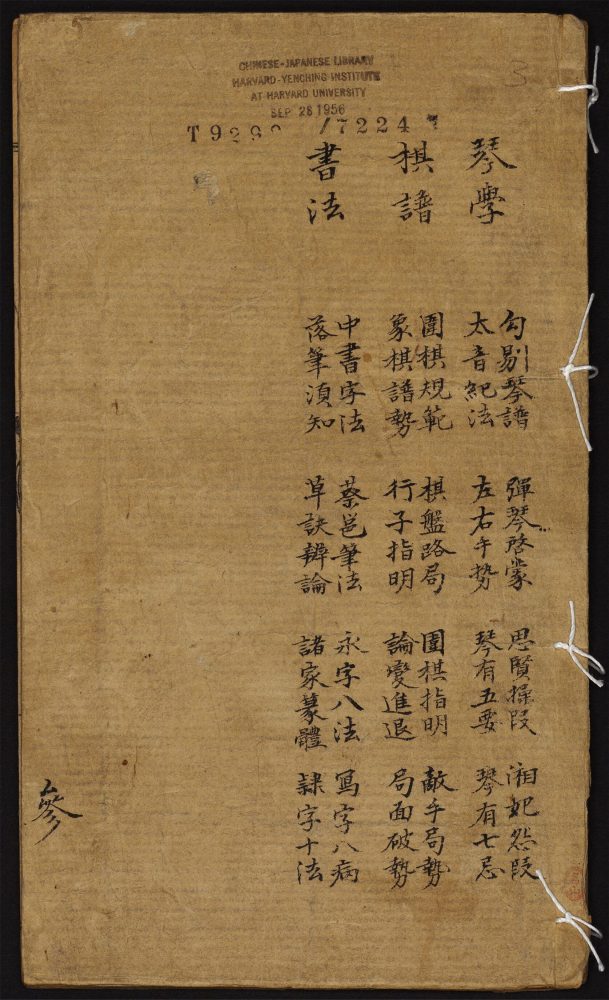 CHINESE-JAPANESE LIBRARY
HARVARD-YENCHING INSTITUTE
AT HARVARD UNIVERSITY
SEP 28 1956
T 9299 /7224
3
琴學
勾剔琴譜 彈琴啓蒙 思賢操段 湘妃怨段
太音紀法 左右手勢 琴有五要 琴有七忌
棋譜
圍棋規範 棋盤路局 圍棋指明 敵手局勢
象棋譜勢 行子指明 論變進退 局面破勢
書法
中書字法 蔡邕筆法 永字八法 寫字八病
落筆須知 草訣辨論 諸家篆體 隸字十法
參